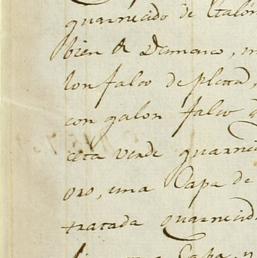 guarnecido de Galón
bien de Damasco, 
lon falso de plata,
con galon falso
verde guarne
oro, una Capa de
tratada guarnecid
Capa,